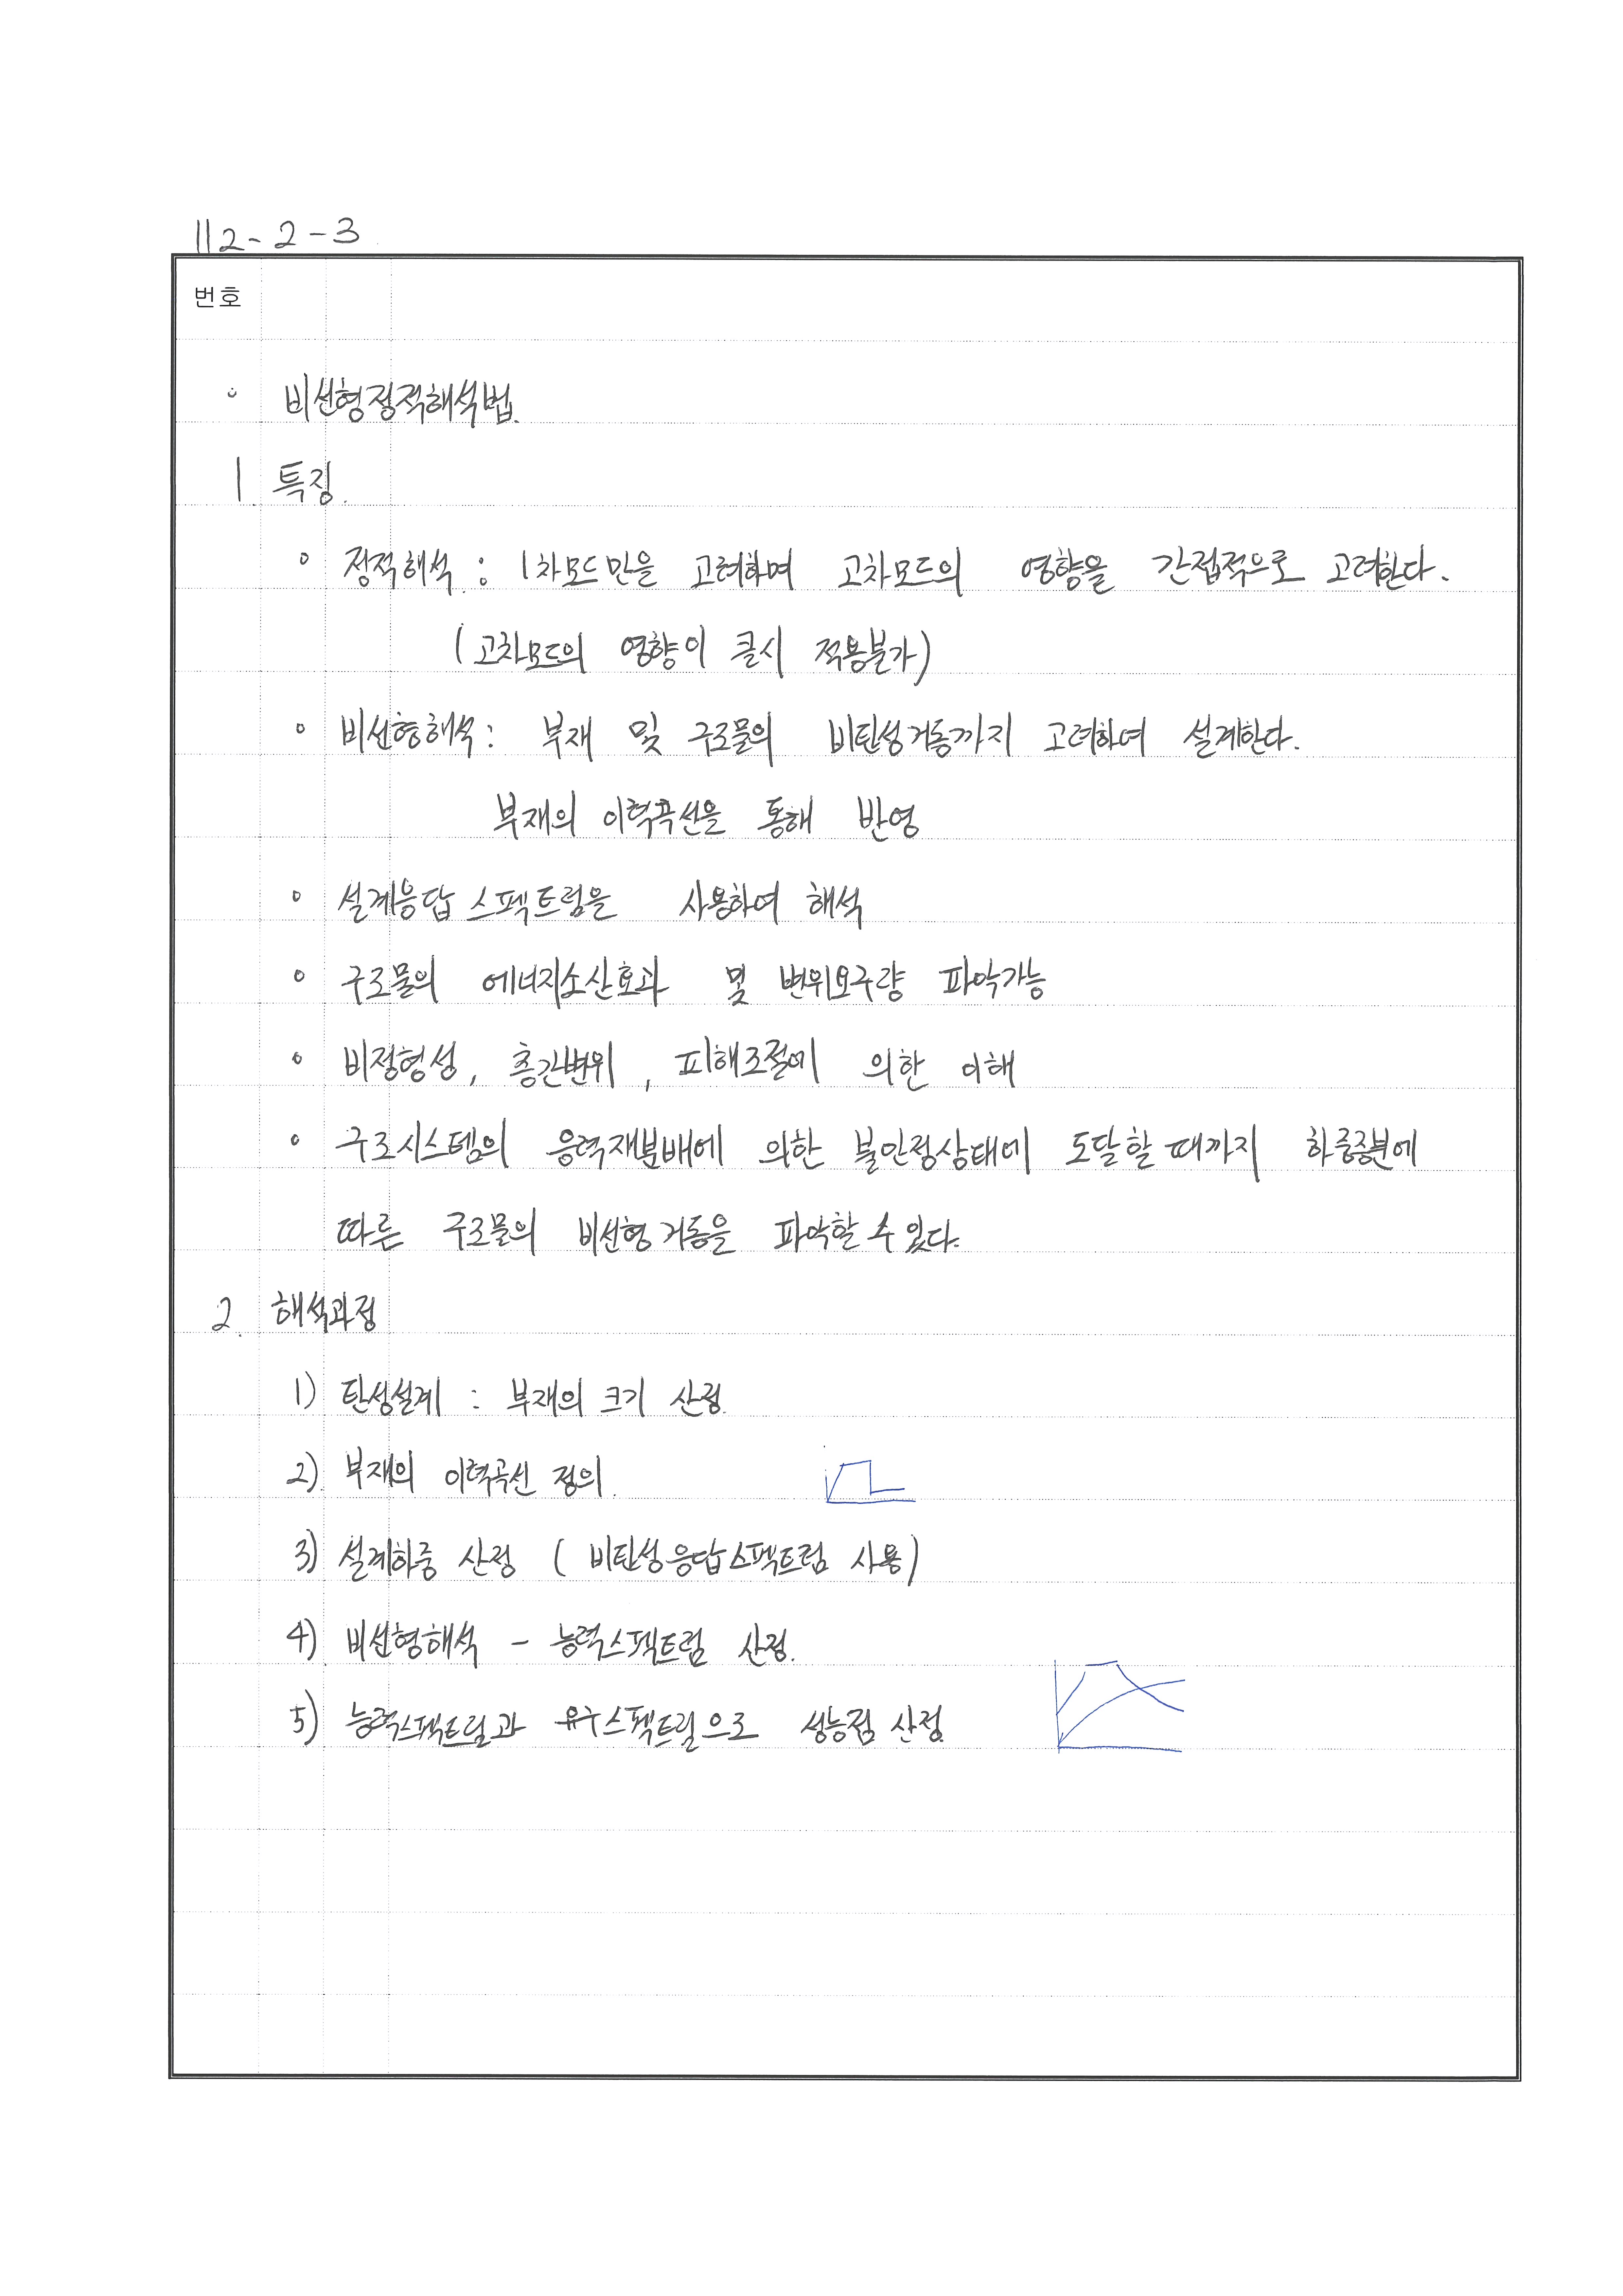 112-2-3
번호
비선형정적해석법.
1. 특징.
◦ 정적해석 : 1차모드만을 고려하며 고차모드의 영향을 간접적으로 고려한다.
(고차모드의 영향이 클시 적용불가)
◦ 비선형해석 : 부재 및 구조물의 비탄성거동까지 고려하여 설계한다.
부재의 이력곡선을 통해 반영
◦ 설계응답스펙트럼을 사용하여 해석
◦ 구조물의 에너지소산효과 및 변위요구량 파악가능
◦ 비정형성, 층간변위, 피해조절에 의한 이해
◦ 구조시스템의 응력재분배에 의한 불안정상태에 도달할 때까지 하중증분에
따른 구조물의 비선형거동을 파악할 수 있다.
2. 해석과정
1) 탄성설계 : 부재의 크기 산정.
2) 부재의 이력곡선 정의.
3) 설계하중 산정 ( 비탄성응답스펙트럼 사용)
4) 비선형해석 - 능력스펙트럼 산정.
5) 능력스펙트럴과 요구스펙트럴으로 성능점 산정.